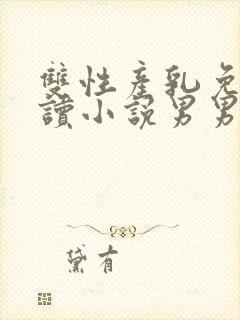 雙性產乳免
讀小說男男
黛有